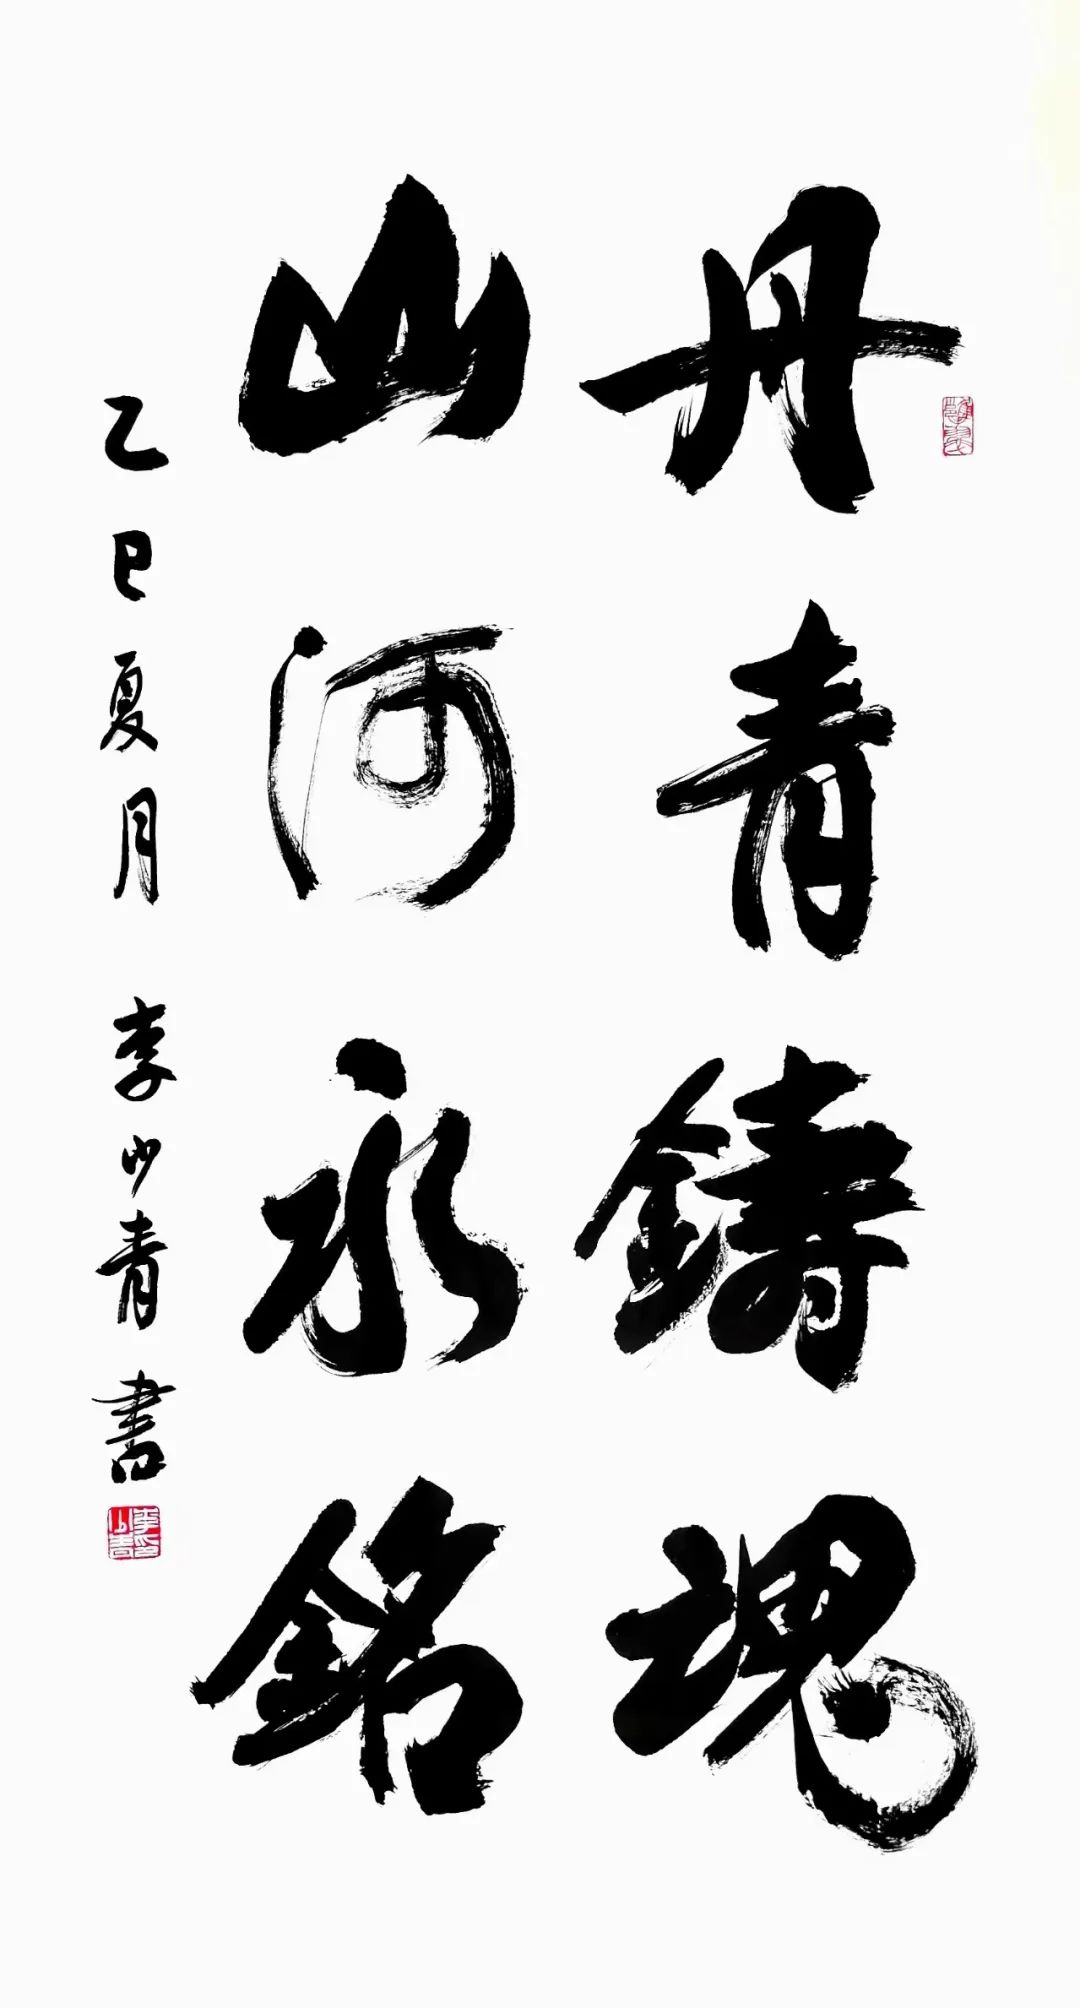 丹青鑄魂
山河永銘
乙巳夏月 李少青書